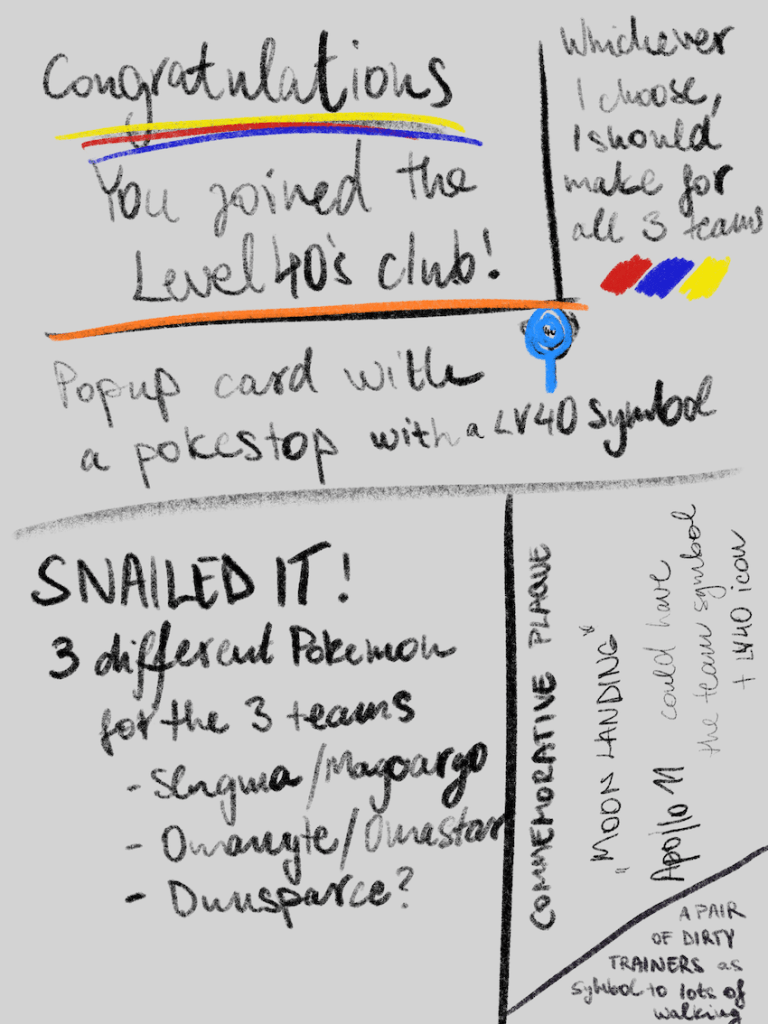 Congratulations
You joined the
Level 40's club!
Whichever
I choose,
I should
make for
all 3 teams
40
Popup card with
a pokestop with a LV40 symbol
SNAILED IT!
3 different Pokemon
for the 3 teams
- Slugma/Magcargo
- Omanyte/Omastar
- Dunsparce?
COMMEMORATIVE PLAQUE
"MOON LANDING"
Apollo 11 could have
the team symbol
+ LV40 icon
A PAIR
OF DIRTY
TRAINERS as
symbol to lots of
walking